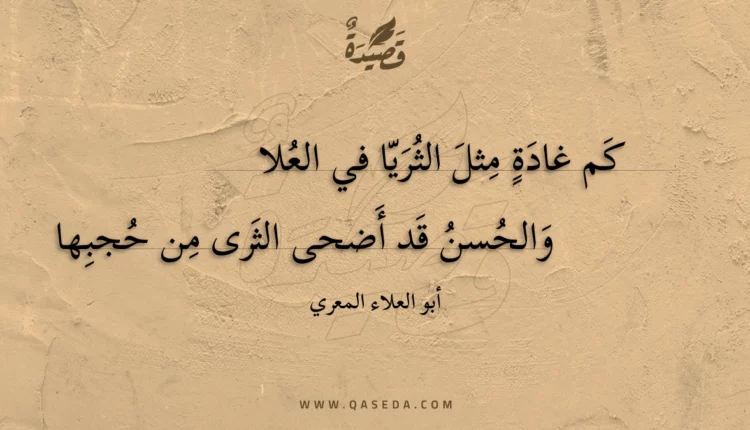 قَصِيدَةٌ
كَم غادَةٍ مِثلَ الثُرَيّا في العُلا
وَالحُسنُ قَد أَضحى الثَرى مِن حُجبِها
أبو العلاء المعري
WWW.QASEDA.COM